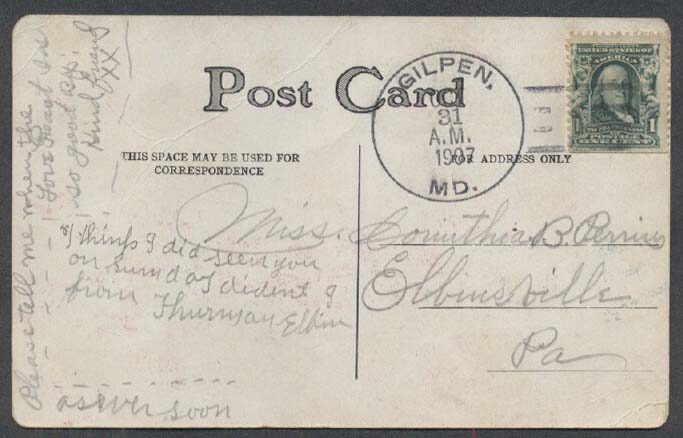 Post Card
THIS SPACE MAY BE USED FOR
CORRESPONDENCE
FOR ADDRESS ONLY
GILPEN,
31
A.M.
1907
MD.
UNITED STATES OF
AMERICA
1 1
ONE CENT
Miss. Corinthia B. Perrin
Elbinsville
Pa
I thinks I did seen you
on sunday dident I
from Thurman Elbin
as ever soon
Please tell me when the
is
so good By.
kind friend
XXX